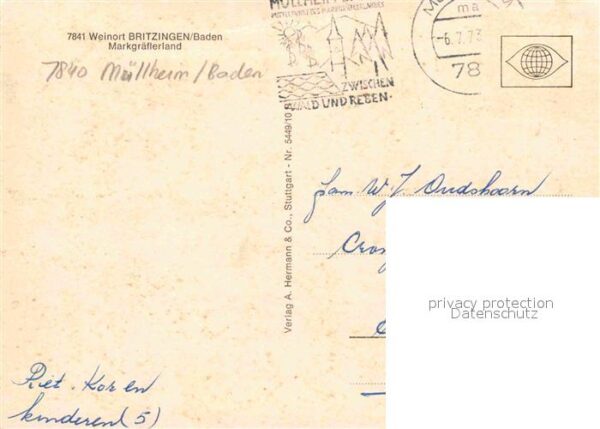 7841 Weinort BRITZINGEN/Baden
Markgräflerland
7840 Müllheim/Baden
MÜLLHEIM
ZWISCHEN
WALD UND REBEN
-6.7.73
78
Verlag A. Hermann & Co., Stuttgart - Nr. 5449/10
Fam W. J. Oudshoorn
privacy protection
Datenschutz
Piet. Kor en
kinderen (5)